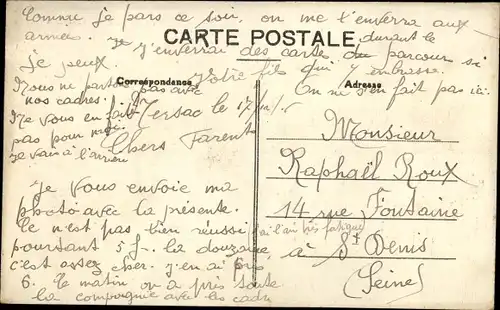 Comme je pars ce soir, on me l'enverra aux
armées. Je vous enverrai des cartes du parcour si
durant le
je peux
CARTE POSTALE
Votre fils qui vous embrasse.
On ne s'en fait pas ici.
Correspondance
Adresse
Nous ne partons pas avec
nos cadres.
Ne vous en faites
pas pour moi
je vais à l'arrière
Jersac le 17/11/15
Chers Parents
Je vous envoie ma
photo avec la présente.
Ce n'est pas bien réussi
j'ai l'air très fatigué
poursant 5 f. la douzaine
c'est assez cher. j'en ai pris
6. Ce matin on a pris toute
la compagnie avec les cadres
Monsieur
Raphaël Roux
14 rue Fontaine
à St Denis
(Seine)